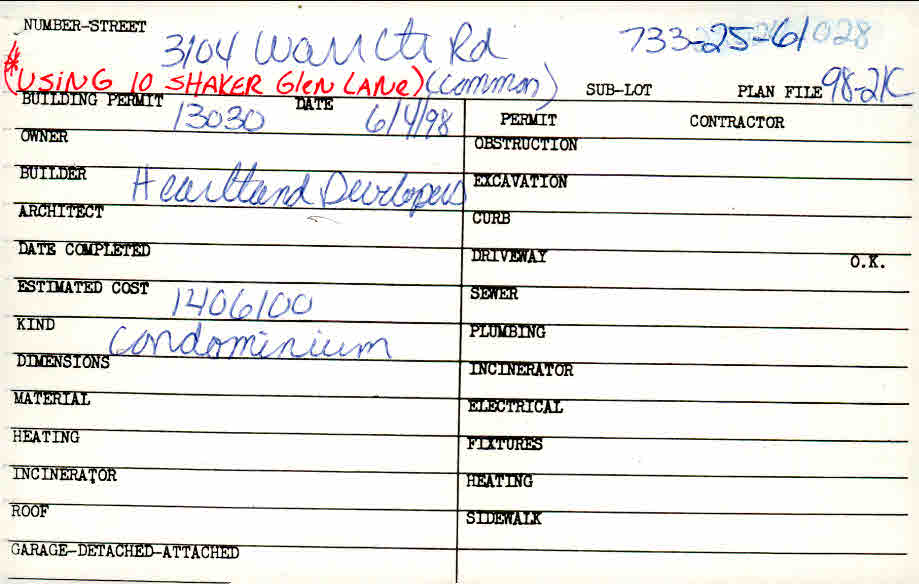 NUMBER-STREET 3104 Warrensville Ctr Rd 733-25-61028
*(USING 10 SHAKER GLEN LANE) (common) SUB-LOT PLAN FILE 98-21C
BUILDING PERMIT 13030 DATE 6/4/98
PERMIT CONTRACTOR
OWNER
OBSTRUCTION
BUILDER Heartland Developers
EXCAVATION
ARCHITECT
CURB
DATE COMPLETED
DRIVEWAY O.K.
ESTIMATED COST 1406100
SEWER
KIND Condominium
PLUMBING
DIMENSIONS
INCINERATOR
MATERIAL
ELECTRICAL
HEATING
FIXTURES
INCINERATOR
HEATING
ROOF
SIDEWALK
GARAGE-DETACHED-ATTACHED